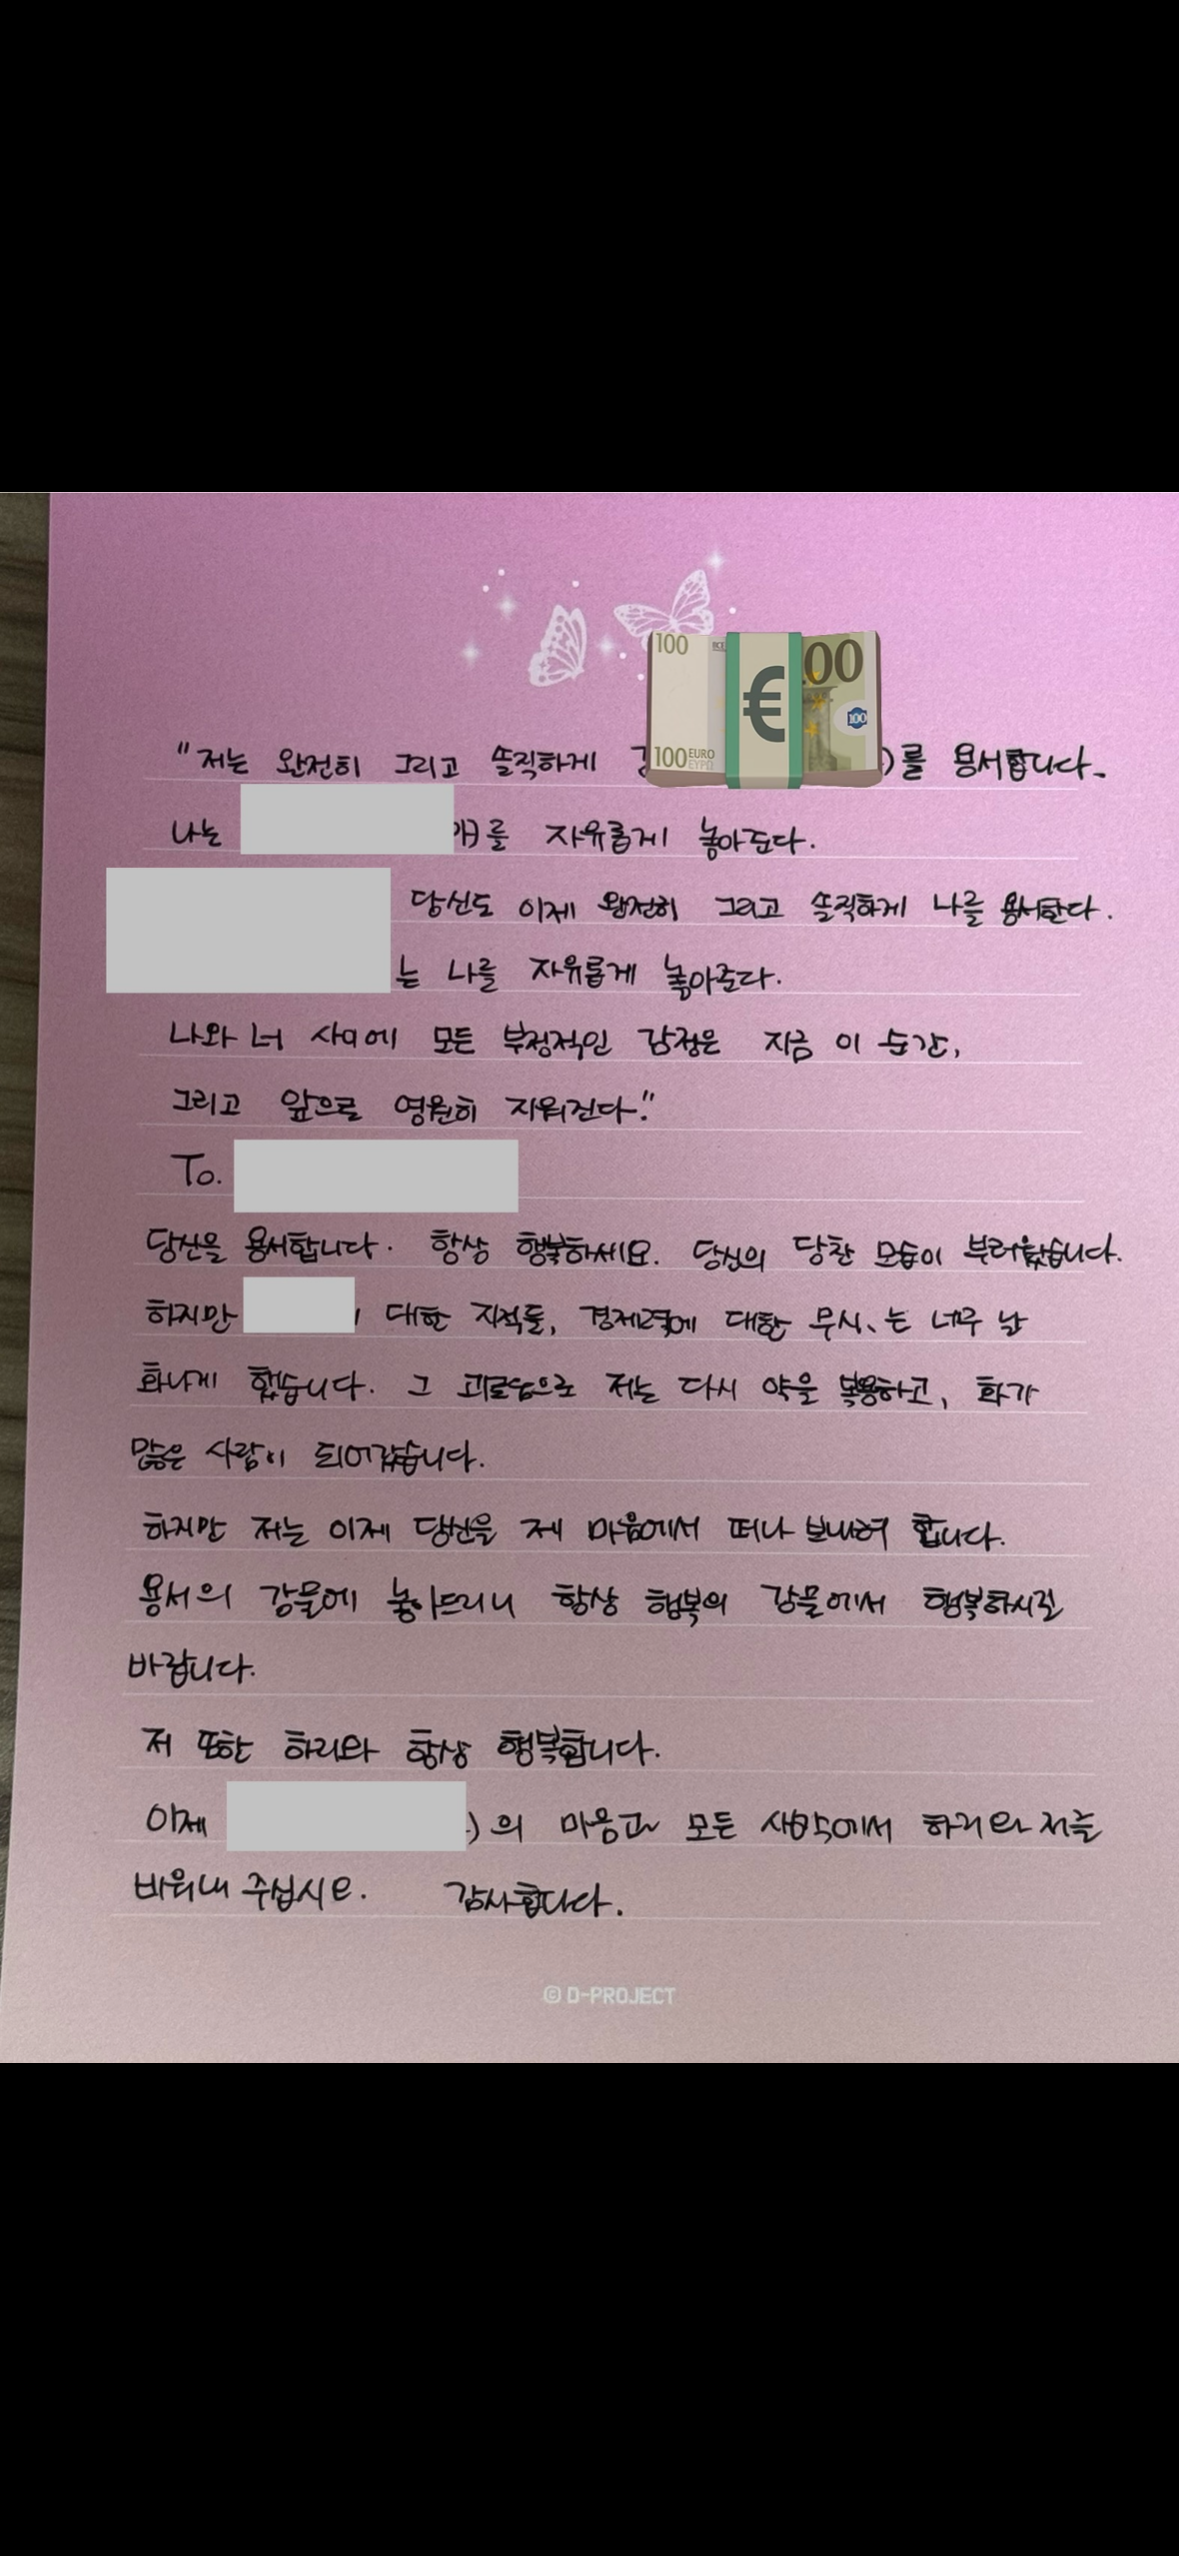 100 100
100 EURO
ΕΥΡΩ
€
"저는 완전히 그리고 솔직하게 )를 용서합니다.
나는 )를 자유롭게 놓아준다.
당신도 이제 완전히 그리고 솔직하게 나를 용서한다.
는 나를 자유롭게 놓아준다.
나와 너 사이에 모든 부정적인 감정은 지금 이 순간,
그리고 앞으로 영원히 지워진다."
To.
당신을 용서합니다. 항상 행복하세요. 당신의 당찬 모습이 부러웠습니다.
하지만 대한 지적들, 경제력에 대한 무시、는 너무 날
화나게 했습니다. 그 괴로움으로 저는 다시 약을 복용하고, 화가
많은 사람이 되어갔습니다.
하지만 저는 이제 당신을 제 마음에서 떠나 보내려 합니다.
용서의 강물에 놓아드리니 항상 행복의 강물에서 행복하시길
바랍니다.
저 또한 하리와 항상 행복합니다.
이제 )의 마음과 모든 사방에서 하리와 저를
비워내 주십시오. 감사합니다.
© D-PROJECT